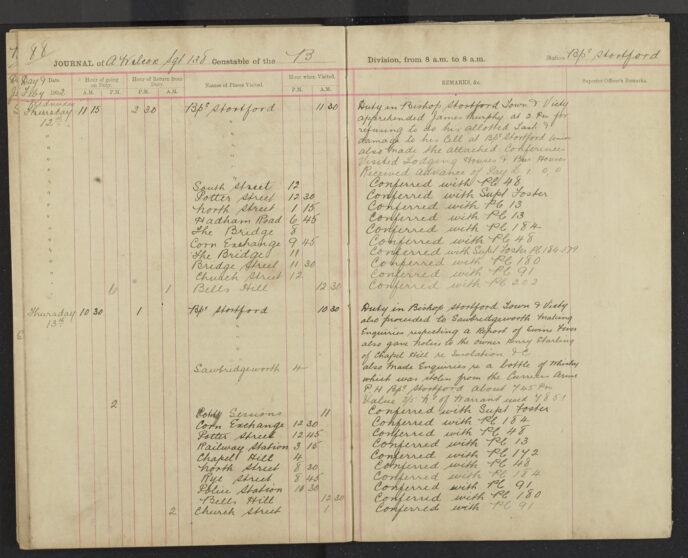 88
JOURNAL of A Wilcox Sgt 138 Constable of the B Division, from 8 a.m. to 8 a.m. Station Bps Stortford
Date. Hour of going on Duty. Hour of Return from Duty. Names of Places Visited. Hour when Visited. REMARKS, &c. Superior Officer's Remarks.
A.M. P.M. A.M. P.M. P.M. A.M.
Thursday 11 15 2 30 Bps Stortford 11 30 Duty in Bishop Stortford Town & Victy
12th apprehended James Murphy at 2 Pm for
refusing to do his allotted Task &
damage to his Cell at Bps Stortford Union
also made the attached Conferences
Visited Lodging Houses & Houses
Received Advance of Pay £ 1. 0, 0
South Street 12 Conferred with PC 48
Potter Street 12 30 Conferred with Supt Foster
North Street 1 15 Conferred with PC 13
Hadham Road 6 45 Conferred with PC 13
The Bridge 8 Conferred with PC 184
Corn Exchange 9 45 Conferred with PC 48
The Bridge 11 Conferred with Supt Foster PC 184 179
Bridge Street 11 30 Conferred with PC 180
Church Street 12 Conferred with PC 91
6 1 Bells Hill 12 30 Conferred with PC 202
Thursday 10 30 1 Bps Stortford 10 30 Duty in Bishop Stortford Town & Victy
13th also proceeded to Sawbridgeworth Making
Enquiries respecting a Report of Swine Fever
also gave notice to the owner Henry Starling
of Chapel Hill re Isolation &c
Sawbridgeworth 4 also Made Enquiries re a bottle of Whisky
which was stolen from the Arms
P H Bps Stortford about 7.45 Pm
Value 3/5 No of Warrant used 4851
2 Petty Sessions 11 Conferred with Supt Foster
Corn Exchange 12 30 Conferred with PC 184
Potter Street 12 45 Conferred with PC 48
Railway Station 3 15 Conferred with PC 13
Chapel Hill 4 Conferred with PC 172
North Street 8 30 Conferred with PC 48
Rye Street 8 45 Conferred with PC 184
Police Station 10 30 Conferred with PC 91
Bells Hill 12 30 Conferred with PC 180
2 Church Street 1 Conferred with PC 91